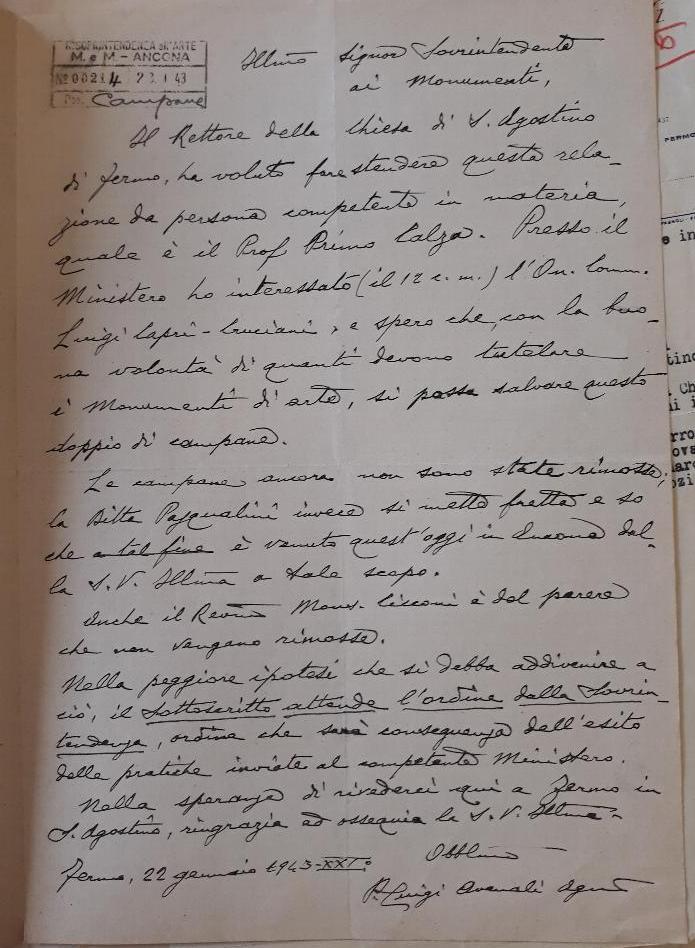 R. SOPRINTENDENZA all'ARTE
M. e M. - ANCONA
No 00214 23.1.43
Pos. Campane
Illmo Signor Sovrintendente
ai Monumenti,
Il Rettore della Chiesa di S. Agostino
di Fermo, ha voluto fare stendere questa rela-
zione da persona competente in materia,
quale è il Prof Primo Calza. Presso il
Ministero ho interessato (il 12 c. m.) l'On. Comm.
Luigi Capri-Cruciani, e spero che, con la buo-
na volontà di quanti devono tutelare
i Monumenti di arte, si possa salvare questo
doppio di campane.
Le campane ancora non sono state rimosse;
la Ditta Pasqualini invece si mette fretta e so
che a tal fine è venuto quest'oggi in Ancona dal-
la S. V. Illma a tale scopo.
Anche il Revmo Mons. Cisconi è del parere
che non vengano rimosse.
Nella peggiore ipotesi che si debba addivenire a
ciò, il sottoscritto attende l'ordine dalla Sovrin-
tendenza, ordine che sarà conseguenza dell'esito
delle pratiche inviate al competente Ministero.
Nella speranza di rivederci qui a Fermo in
S. Agostino, ringrazia ed ossequia la S. V. Illma.
Fermo, 22 gennaio 1943-XXI°
Obblmo
P. Luigi Avenali Agno
FERMO
e in
tino
Ch